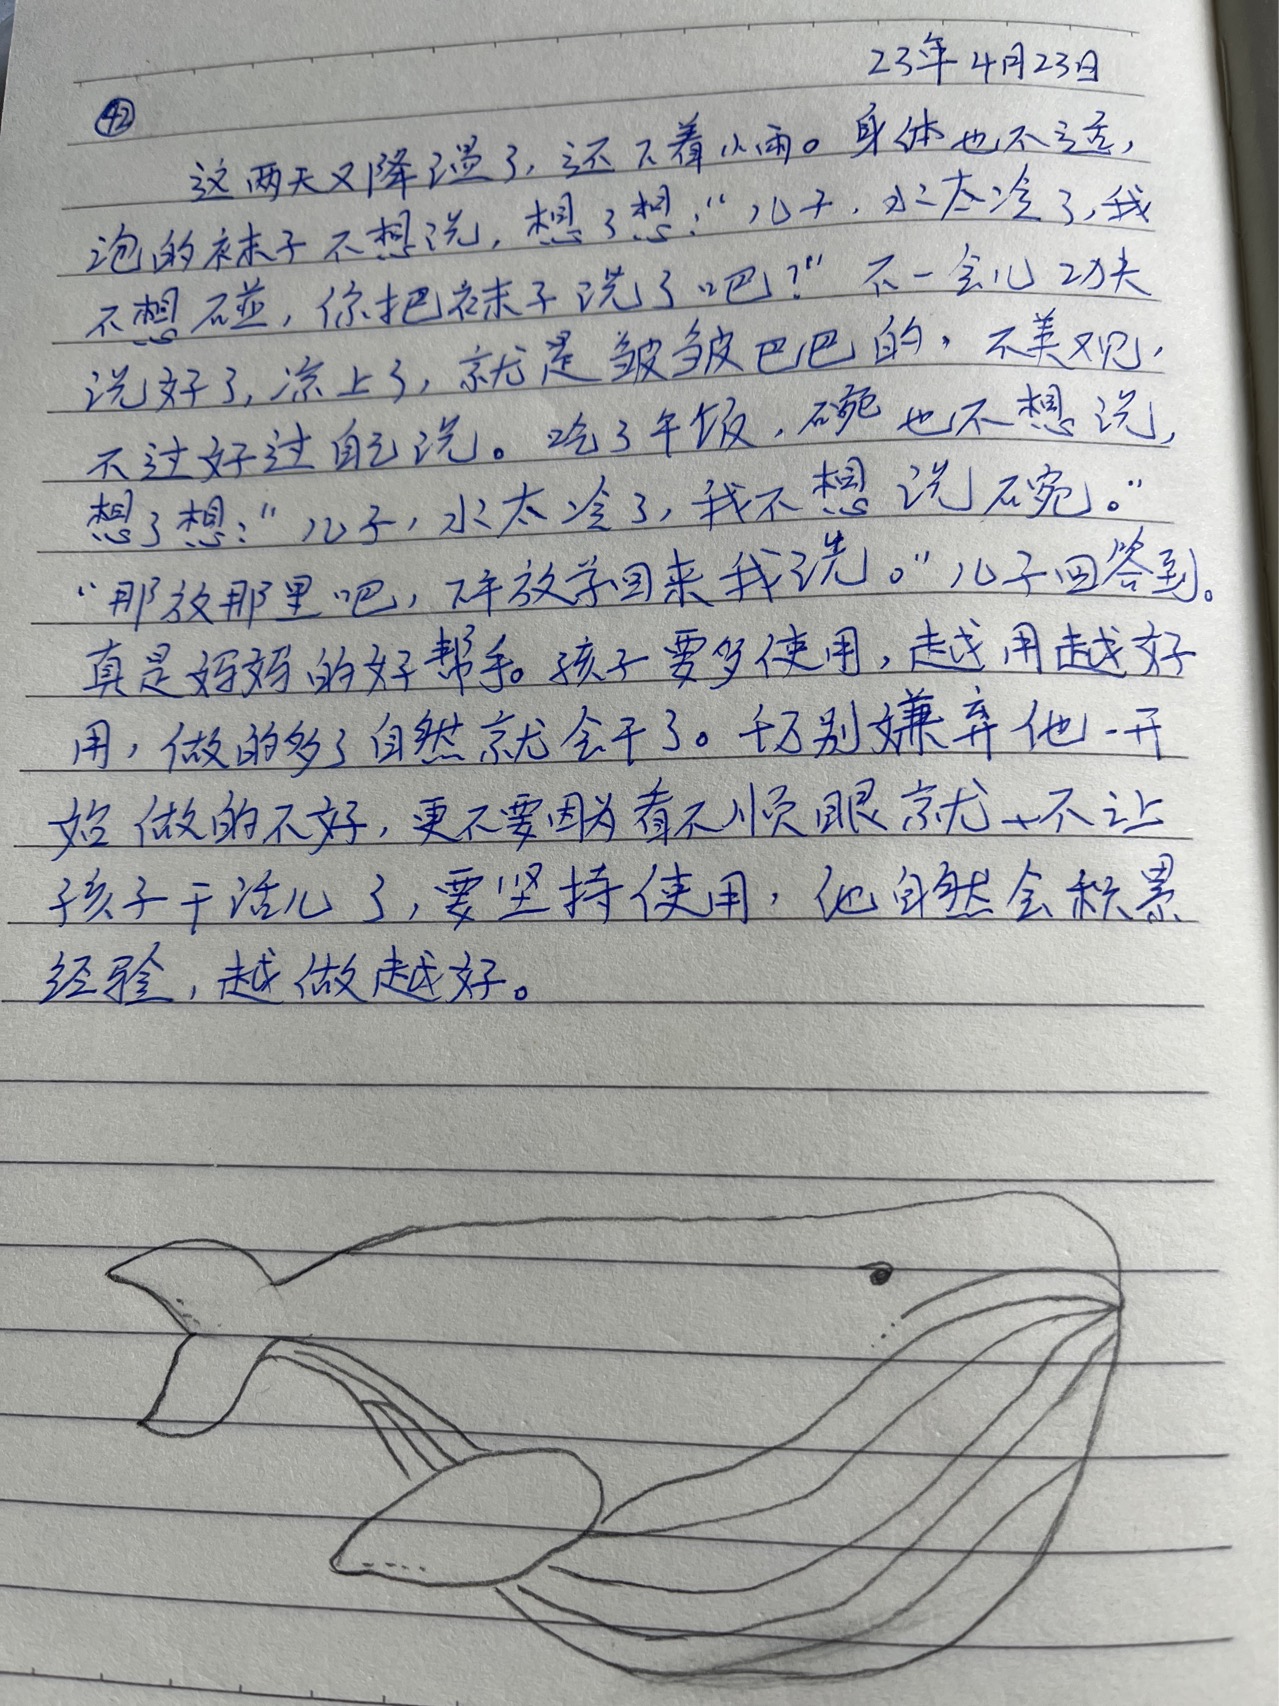 23年4月23日
42
这两天又降温了,还下着小雨。身体也不适,
泡的袜子不想洗,想了想:“儿子,水太冷了,我
不想碰,你把袜子洗了吧?”不一会儿功夫
洗好了,凉上了,就是皱皱巴巴的,不美观,
不过好过自己洗。吃了午饭,碗也不想洗,
想了想:“儿子,水太冷了,我不想洗碗。”
“那放那里吧,下午放学回来我洗。”儿子回答到。
真是妈妈的好帮手。孩子要多使用,越用越好
用,做的多了自然就会干了。千万别嫌弃他一开
始做的不好,更不要因为看不顺眼就不让
孩子干活儿了,要坚持使用,他自然会积累
经验,越做越好。